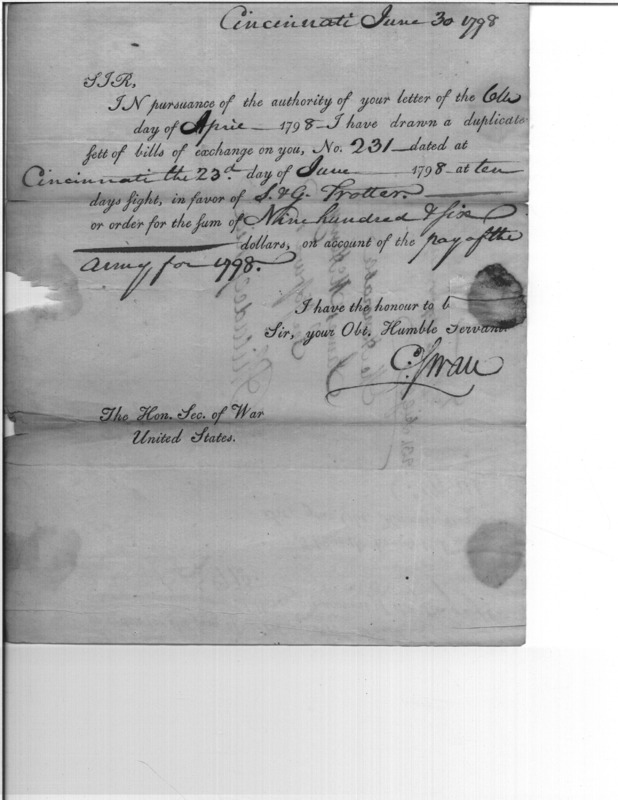 Cincinnati June 30 1798
SIR,
IN pursuance of the authority of your letter of the 6th
day of April 1798 - I have drawn a duplicate
sett of bills of exchange on you, No. 231 dated at
Cincinnati the 23d day of June 1798 - at ten
days sight, in favor of S. & G. Trotter.
or order for the sum of Nine hundred & six
dollars, on account of the pay of the
army for 1798.
I have the honour to b
Sir, your Obt. Humble Servant
C. Swan
The Hon. Sec. of War
United States.